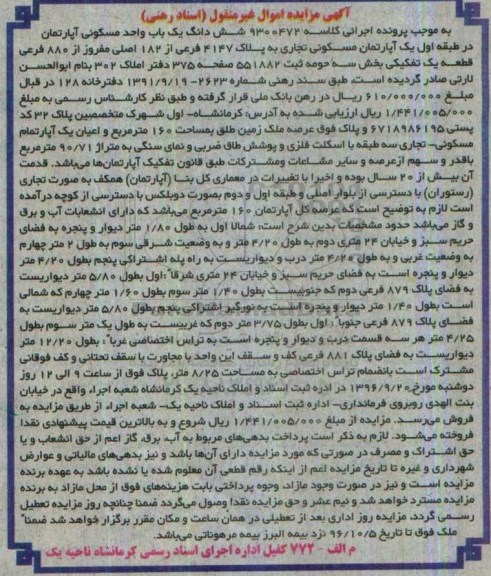 آگهی مزایده اموال غیرمنقول (اسناد رهنی)
به موجب پرونده اجرائی کلاسه ۹۳۰۰۴۷۲ شش دانگ یک باب واحد مسکونی آپارتمان
در طبقه اول یک آپارتمان مسکونی تجاری به پلاک ۴۱۴۷ فرعی از ۱۸۲ اصلی مفروز از ۸۸۰ فرعی
قطعه یک تفکیکی بخش سه حومه ثبت ۵۵۱۸۸۲ صفحه ۳۷۵ دفتر املاک ۳۰۲ بنام ابوالحسن
لارتی صادر گردیده است. طبق سند رهنی شماره ۲۶۲۳- ۱۳۹۱/۹/۱۹ دفترخانه ۱۲۸ در قبال
مبلغ ۶۱۰/۰۰۰/۰۰۰ ریال در رهن بانک ملی قرار گرفته و طبق نظر کارشناس رسمی به مبلغ
۱/۴۴۱/۰۰۵/۰۰۰ ریال ارزیابی شده به آدرس: کرمانشاه- اول شهرک متخصصین پلاک ۳۲ کد
پستی ۶۷۱۸۹۸۶۱۹۵ و پلاک فوق عرصه ملک زمین طلق بمساحت ۱۶۰ مترمربع و اعیان یک آپارتمام
مسکونی- تجاری سه طبقه با اسکلت فلزی و پوشش طاق ضربی و نمای سنگی به متراژ ۹۰/۷۱ مترمربع
باقدر و سهم ازعرصه و سایر مشاعات ومشترکات طبق قانون تفکیک آپارتمان‌ها می‌باشد. قدمت
آن بیش از ۲۰ سال بوده و اخیرا با تغییرات در معماری کل بنا (آپارتمان) همکف به صورت تجاری
(رستوران) با دسترسی از بلوار اصلی و طبقه اول و دوم بصورت دوبلکس با دسترسی از کوچه درآمده
است لازم به توضیح است که عرصه کل آپارتمان ۱۶۰ مترمربع می‌باشد که دارای انشعابات آب و برق
و گاز می‌باشد حدود مشخصات بدین شرح است: شمالا اول به طول ۱/۸۰ متر دیوار و پنجره به فضای
حریم سبز و خیابان ۲۴ متری دوم به طول ۴/۲۰ متر و به وضعیت شرقی سوم به طول ۲ متر چهارم
به وضعیت غربی و به طول ۴/۲۰ متر درب و دیواریست به راه پله اشتراکی پنجم بطول ۴/۲۰ متر
دیوار و پنجره است به فضای حریم سبز و خیابان ۲۴ متری شرقا: اول بطول ۵/۸۰ متر دیواریست
به فضای پلاک ۸۷۹ فرعی دوم که جنوبیست بطول ۱/۴۰ متر سوم بطول ۱/۶۰ متر چهارم که شمالی
است بطول ۱/۴۰ متر دیوار و پنجره است به نورگیر اشتراکی پنجم بطول ۵/۸۰ متر دیواریست به
فضای پلاک ۸۷۹ فرعی جنوبا: اول بطول ۳/۷۵ متر دوم که غربیست به طول یک متر سوم بطول
۴/۲۵ متر هر سه قسمت درب و دیوار و پنجره است به تراس اختصاصی غربا: بطول ۱۲/۲۰ متر
دیواریست به فضای پلاک ۸۸۱ فرعی کف و سقف این واحد با مجاورت با سقف تحتانی و کف فوقانی
مشترک است بانضمام تراس اختصاصی به مساحت ۸/۲۵ متر، پلاک فوق از ساعت ۹ الی ۱۲ روز
دوشنبه مورخ ۱۳۹۶/۹/۲۰ در ادره ثبت اسناد و املاک ناحیه یک کرمانشاه شعبه اجراء واقع در خیابان
بنت الهدی روبروی فرمانداری- اداره ثبت اسناد و املاک ناحیه یک- شعبه اجراء از طریق مزایده به
فروش می‌رسد. مزایده از مبلغ ۱/۴۴۱/۰۰۵/۰۰۰ ریال شروع و به بالاترین قیمت پیشنهادی نقدا
فروخته می‌شود. لازم به ذکر است پرداخت بدهی‌های مربوط به آب، برق، گاز اعم از حق انشعاب و یا
حق اشتراک و مصرف در صورتی که مورد مزایده دارای آن‌ها باشد و نیز بدهی‌های مالیاتی و عوارض
شهرداری و غیره تا تاریخ مزایده اعم از اینکه رقم قطعی آن معلوم شده یا نشده باشد به عهده برنده
مزایده است و نیز در صورت وجود مازاد، وجوه پرداختی بابت هزینه‌های فوق از محل مازاد به برنده
مزایده مسترد خواهد شد و نیم عشر و حق مزایده نقدا وصول می‌گردد ضمنا چنانچه روز مزایده تعطیل
رسمی گردد، مزایده روز اداری بعد از تعطیلی در همان ساعت و مکان مقرر برگزار خواهد شد ضمنا
ملک فوق تا تاریخ ۹۶/۱۰/۵ نزد بیمه البرز بیمه مرهوناتی می‌باشد.
م الف - ۷۷۲ کفیل اداره اجرای اسناد رسمی کرمانشاه ناحیه یک